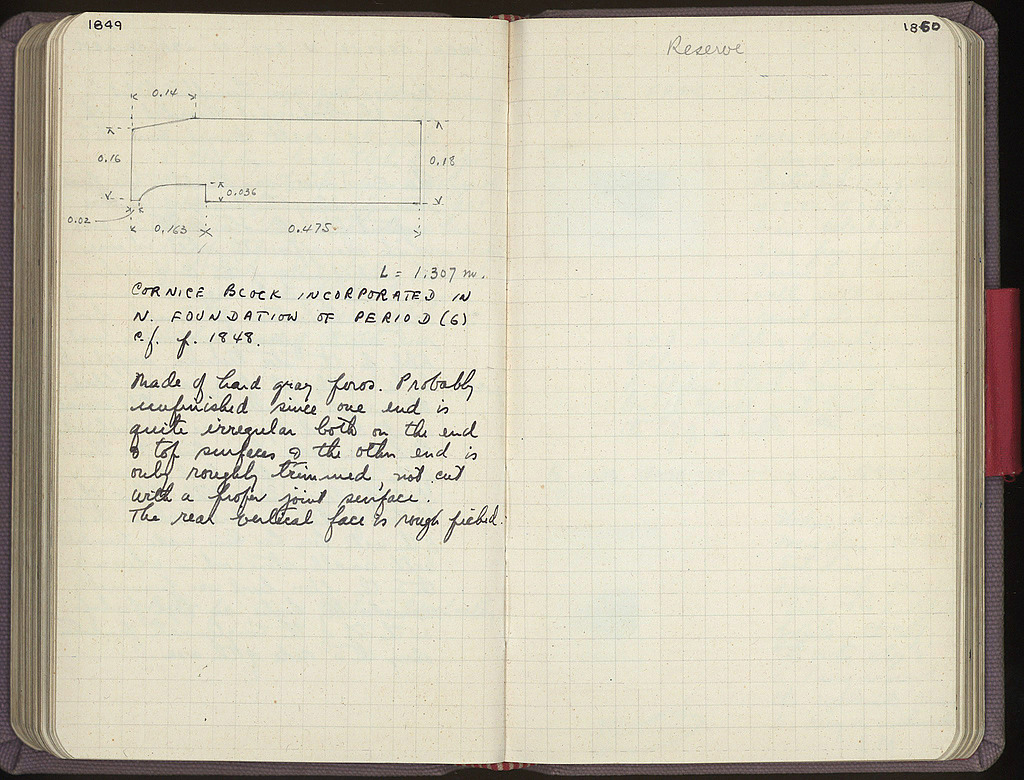 1849
0.14
0.16
0.18
0.036
0.02
0.163
0.475
L = 1.307 m.
CORNICE BLOCK INCORPORATED IN
N. FOUNDATION OF PERIOD (6)
c.f. p. 1848.
Made of hard gray poros. Probably
unfinished since one end is
quite irregular both on the end
& top surfaces & the other end is
only roughly trimmed, not cut
with a proper joint surface.
The rear vertical face is rough picked.
1850
Reserve